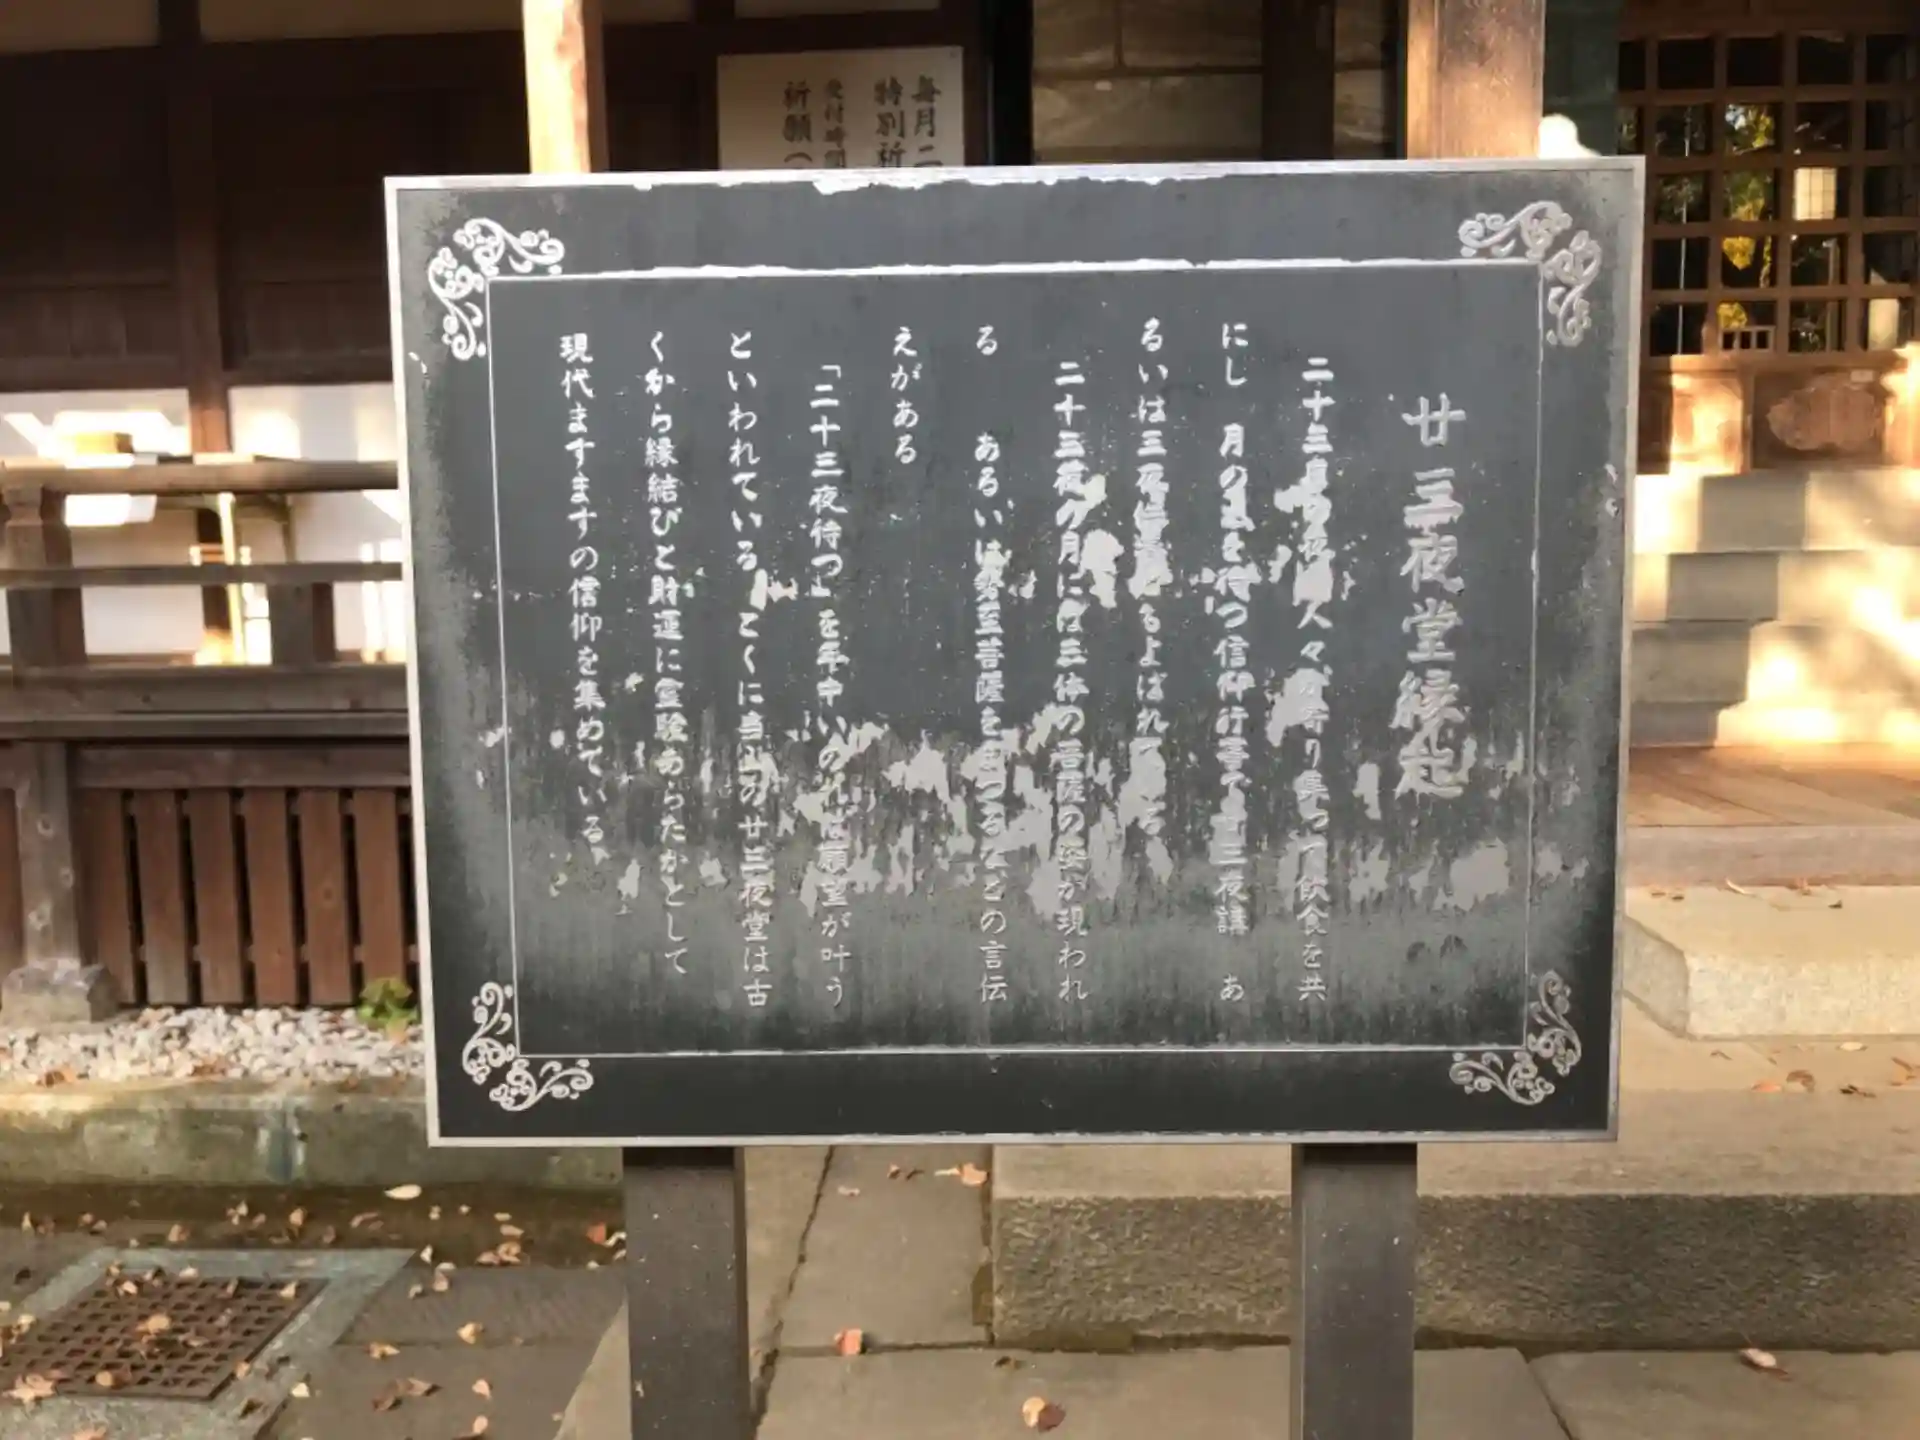 廿三夜堂縁起
二十三日の夜 人々が寄り集って飲食を共
にし 月の出を待つ信仰行事で廿三夜講 あ
るいは三夜供養ともよばれている
二十三夜の月には三体の菩薩の姿が現われ
る あるいは勢至菩薩をまつるなどの言伝
えがある
「二十三夜待つ」を年中いのれば願望が叶う
といわれている とくに当山の廿三夜堂は古
くから縁結びと財運に霊験あらたかとして
現代ますますの信仰を集めている。
毎月二
特別祈
受付時間
祈願(